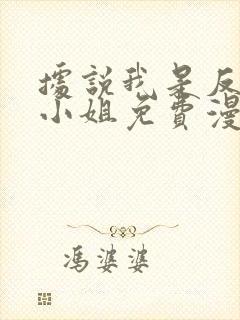 據說我是反
小姐免費漫
馮婆婆